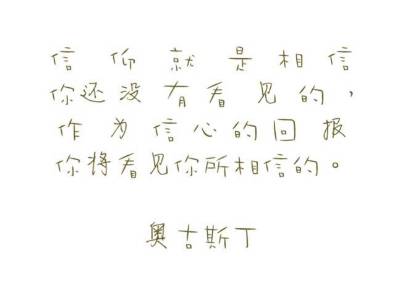 信仰就是相信
你还没有看见的，
作为信心的回报
你將看见你所相信的。
奥古斯丁